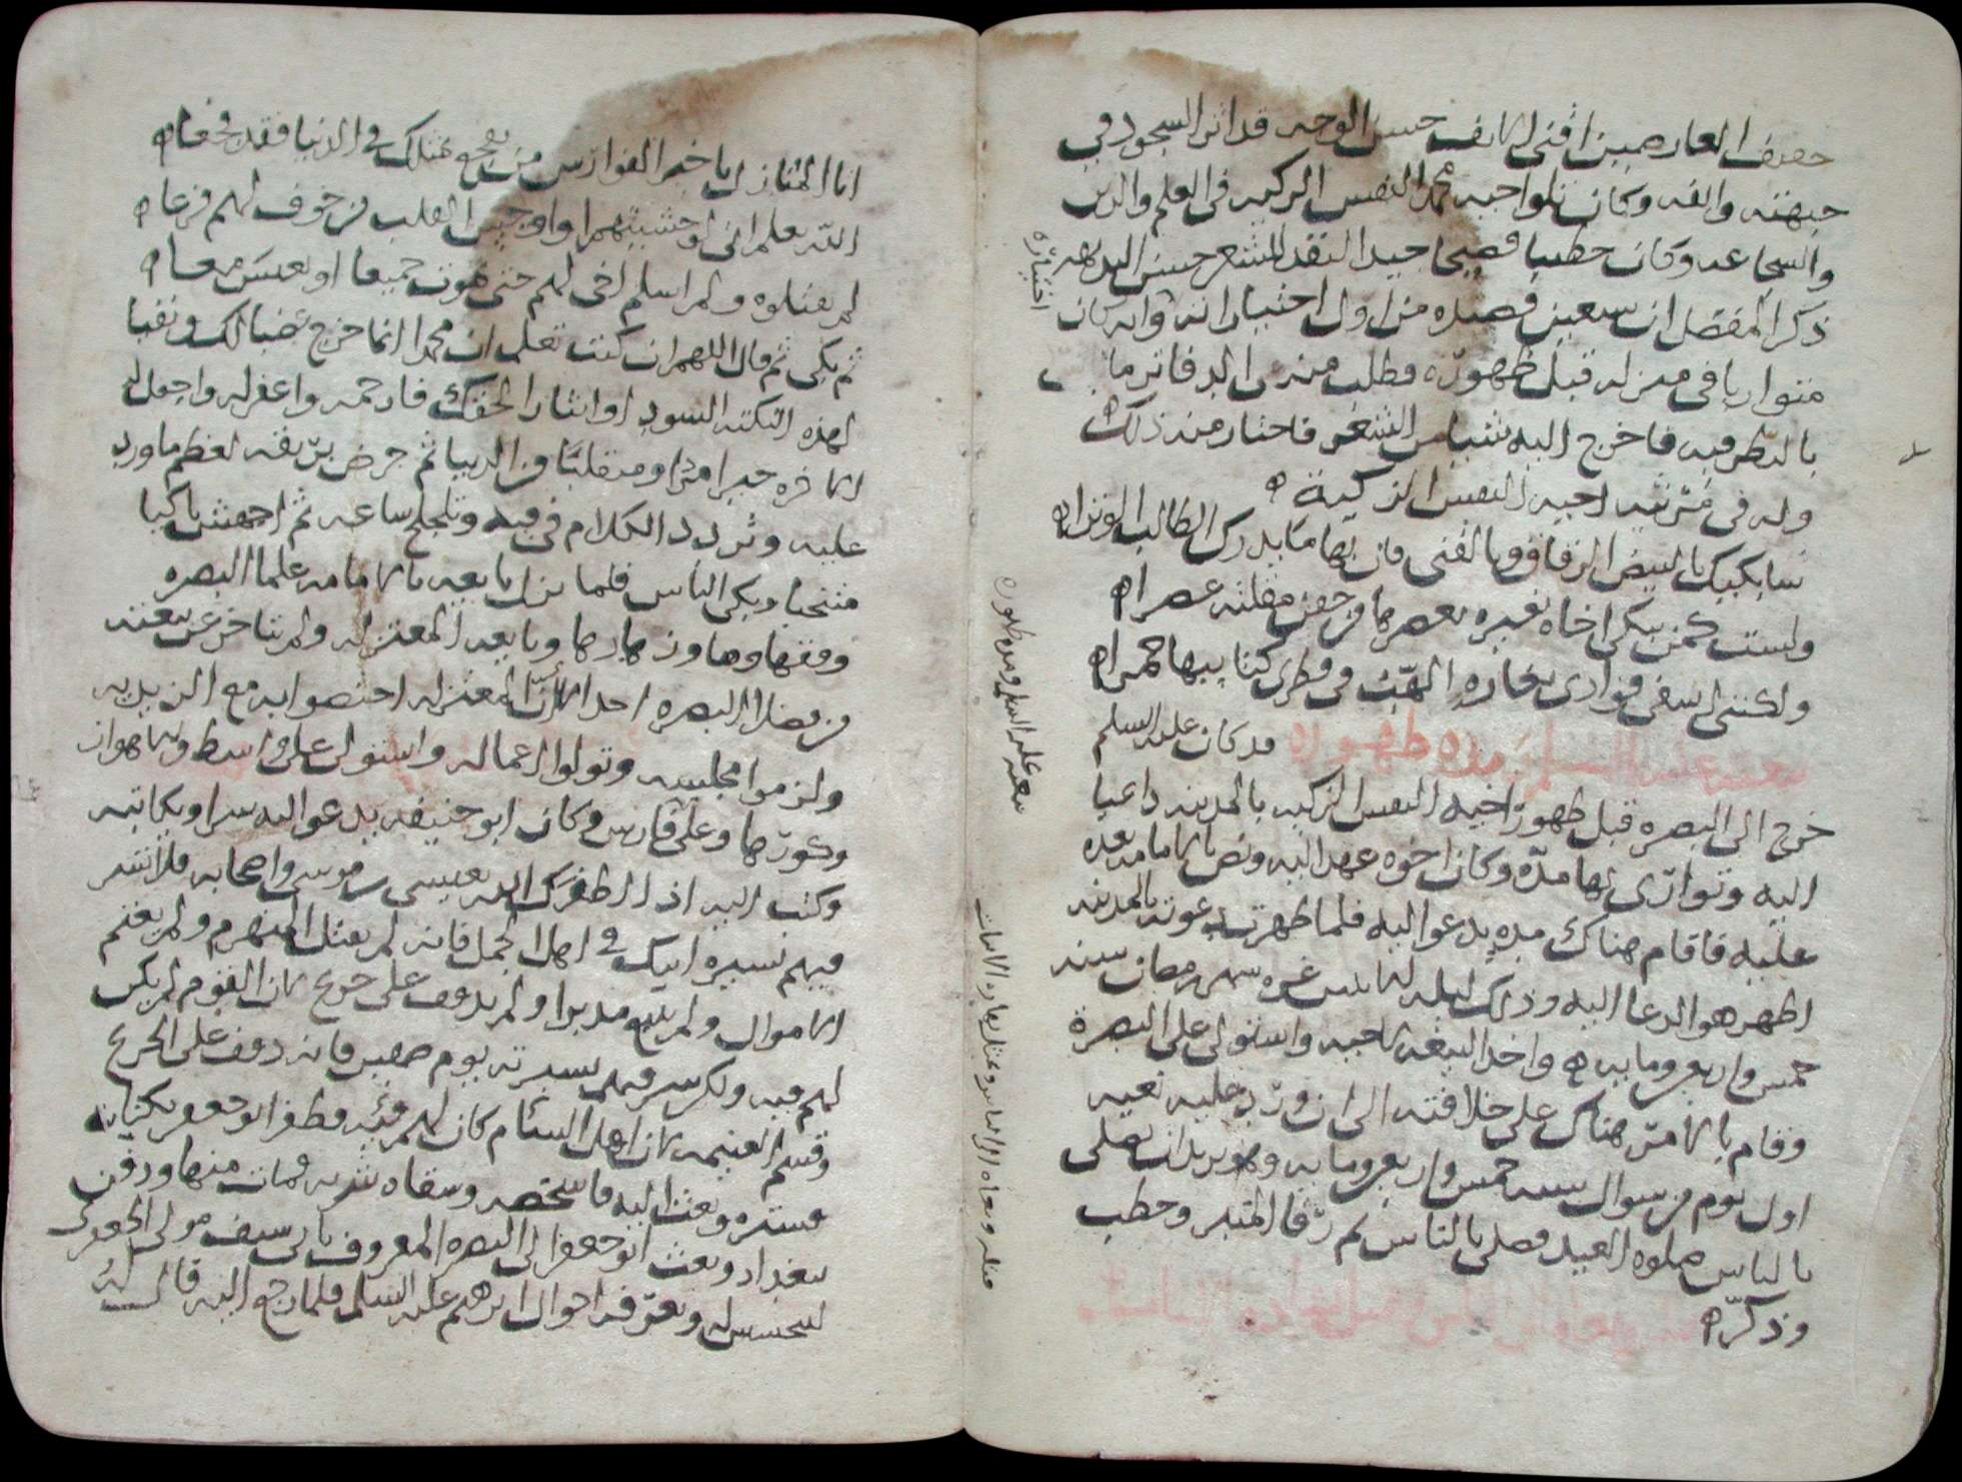 خفيف العارضين اقنى الانف حسن الوجه قد اثر السجود في
جبهته وانفه وكان تلو اخيه محمد النفس الزكيه فى العلم والدين
والشجاعه وكان خطيبا فصيحا جيد النقد للشعر حسن البديهه
ذكر المفضل ان سبعين قصيده من اول اختياراته وانه كان
متواريا في منزله قبل ظهوره وطلب منه من الدفاتر ما
بالنظر فيه فاخرج اليه شيا من الشعر فاختار منه ذلك ه
وله فى مرثيه اخيه النفس الزكية ه
سابكيك بالبيض الرقاق وبالقنى فان بها ما يدرك الطالب الوترا ه
ولست كمن يبكى اخاه بعبره يعصرها من جفن مقلته عصرا ه
ولكننى اشفى فؤادى بغارة الهب فى قطرى كتايبها جمرا ه
بيعته عليه السلم ومده ظهوره قد كان عليه السلم
خرج الى البصره قبل ظهور اخيه النفس الزكيه بالمدينه داعيا
اليه وتوارى بها مدة وكان اخوه عهد اليه ونص بالامامه بعده
عليه فاقام هناك مده يدعوا اليه فلما ظهرت دعوته بالمدينه
اظهر هو الدعا اليه وذلك ليله الاثنين غره شهر رمضان سنه
خمس واربعين ومايه ه واخذ البيعه لاخيه واستولى على البصرة
وقام بالامر هناك على خلافته الى ان ورد عليه نعيه
اول يوم من شوال سنه خمس واربعين ومايه وهو يريد ان يصلى
بالناس صلوه العيد فصلى بالناس ثم رقا المنبر وخطب
وذكر ه
اختياره
بيعته عليه السلم ومده ظهوره
انا المنازل يا خير الفوارس من يفجع بمثلك في الدنيا فقد فجعا ه
الله يعلم انى لو خشيتهم او اوجس القلب من خوف لهم فزعا ه
لم يقتلوه ولم اسلم اخى لهم حتى نموت جميعا او نعيش معا ه
ثم بكى ثم قال اللهم ان كنت تعلم ان محمدا انما خرج غضبا لك ونفيا
لهذه النكته السود او ايثارا لحقك فارحمه واغفر له واجعل له
الاخره خيرا مردا ومنقلبا من الدنيا ثم جرض بريقه لعظم ما ورد
عليه وتردد الكلام فى فيه وتلجلج ساعه ثم اجهش باكيا
منتحبا وبكى الناس فلما نزل بايعه بالامامه علما البصره
وفقهاوها وزهادها وبايعه المعتزله ولم يتاخر عن بيعته
من فضلا البصره احد الا ان المعتزله اختصوا به مع الزيديه
ولزموا مجلسه وتولوا اعماله واستولى على واسط والاهواز
وكورها وعلى فارس وكان ابو حنيفه يدعوا اليه سرا ويكاتبه
وكتب اليه اذا اظفرك الله بعيسى بن موسى واصحابه فلا تسر
فيهم بسيره ابيك في اهل الجمل فانه لم يقتل المنهزم ولم يغنم
الاموال ولم يتبع مدبرا ولم يدفف على جريح لان القوم لم يكن
لهم فيه ولكن سر فيهم بسيرته يوم صفين فانه دفف على الجريح
وقسم الغنيمه لان اهل الشام كان لهم فئه فظفر ابو جعفر بكتابه
فستره وبعث اليه فاشخصه وسقاه شربه فمات منها ودفن
ببغداد وبعث ابو جعفر الى البصره المعروف بابى سيف مولى الجعفرى
لتجسس له وتعرف احوال ابرهيم عليه السلم فلما رجع اليه قال له